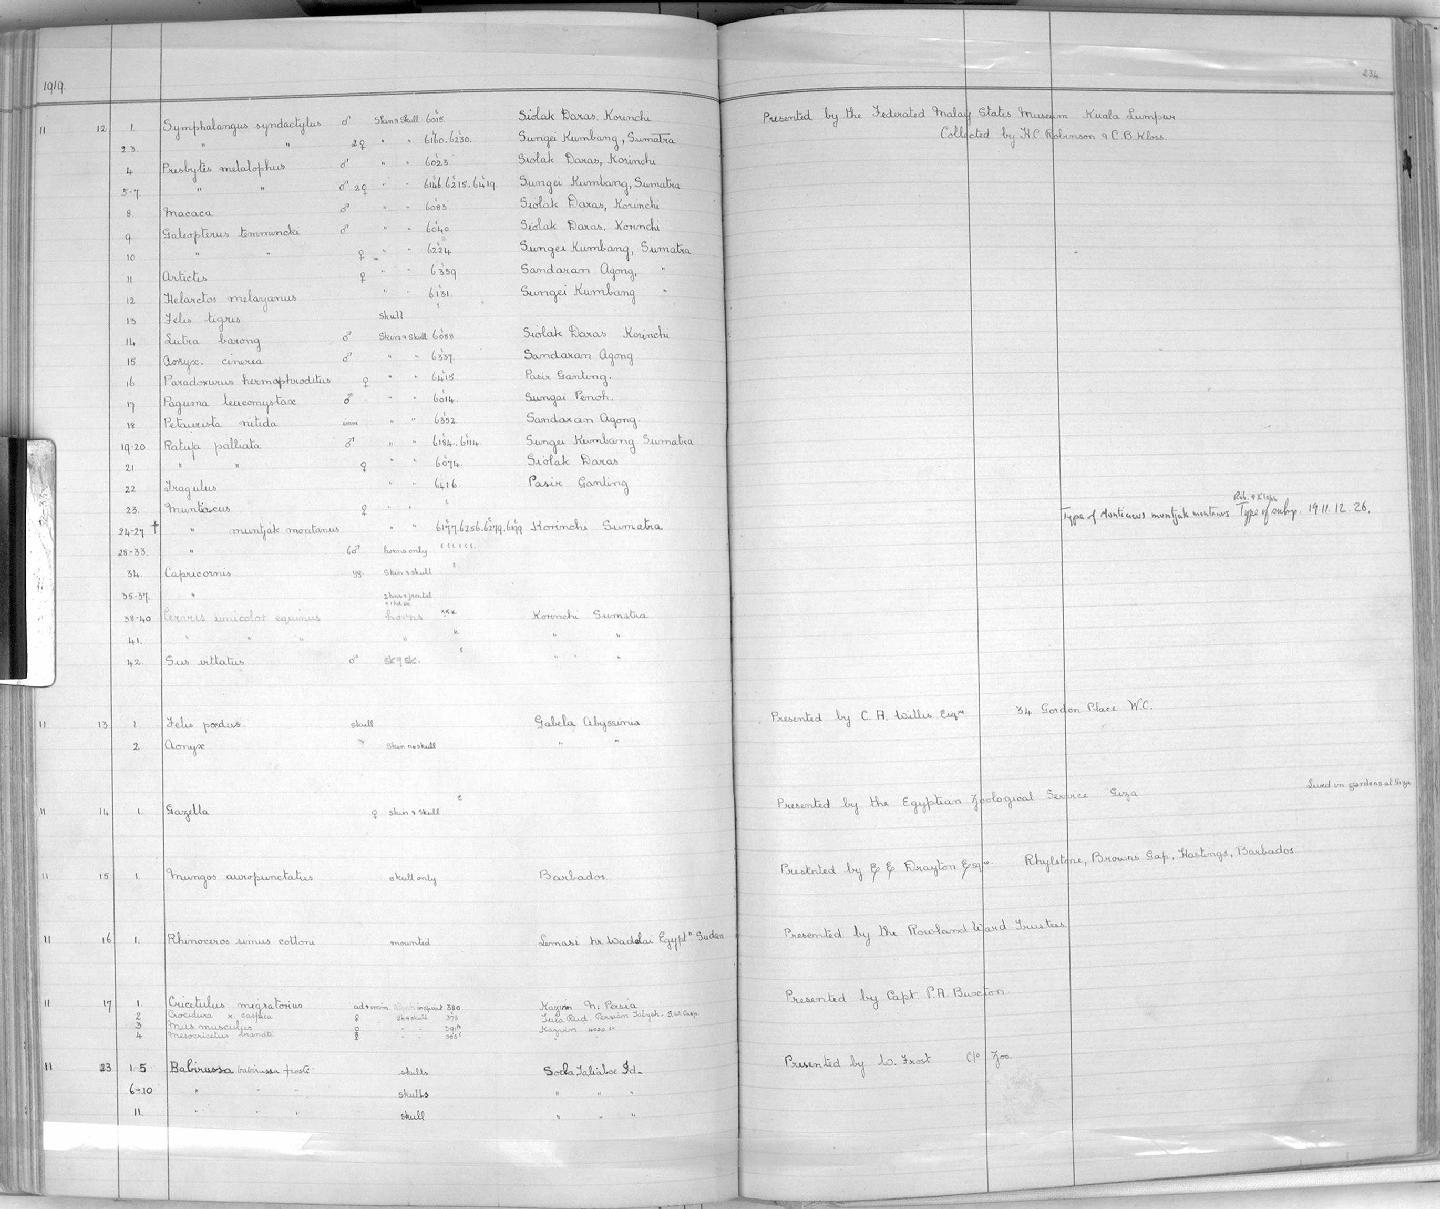 1919.
234
11 12. 1. Symphalangus syndactylus ♂ Skin & Skull 6015. Siolak Daras, Korinchi Presented by the Federated Malay States Museum Kuala Lumpur
2.3. " " 2♀ " " 6160. 6230. Sungei Kumbang, Sumatra Collected by H.C. Robinson & C.B. Kloss.
4 Presbytis melalophus ♂ " " 6023 Siolak Daras, Korinchi
5-7. " " ♂ 2♀ " " 6146. 6215. 6419. Sungei Kumbang, Sumatra
8. Macaca ♂ " " 6083 Siolak Daras, Korinchi
9 Galeopterus temmincki ♂ " " 6040 Siolak Daras, Korinchi
10 " " ♀ " " 6224 Sungei Kumbang, Sumatra
11 Artictis ♀ " " 6359 Sandaran Agong, "
12 Helarctos malayanus " " 6131 Sungei Kumbang "
13 Felis tigris Skull
14 Lutra barang ♂ Skin & Skull 6088 Siolak Daras Korinchi
15 Aonyx. cinerea ♂ " " 6337. Sandaran Agong
16 Paradoxurus hermaphroditus ♀ " " 6415 Pasir Ganting.
17 Paguma leucomystax ♂ " " 6014. Sungai Penoh.
18 Petaurista nitida " " 6352 Sandaran Agong.
19-20 Ratufa palliata ♂ " " 6184. 6114. Sungei Kumbang Sumatra
21 " " ♀ " " 6074. Siolak Daras
22 Tragulus " " 6416 Pasir Ganting
23. Muntiacus ♀ " "
24-27 † " muntjak montanus " " 6177. 6256. 6279. 6199 Korinchi Sumatra Type of Muntiacus muntjak montanus Rob. & Kloss Type of only. 19.11.12.26.
28-33. " 6♂ horns only
34. Capricornis yg. Skin & skull
35-37. "
38-40 Cervus unicolor equinus horns Korinchi Sumatra
41. " " " " " "
42. Sus vittatus ♂ Sk & Sk. " " "
11 13. 1 Felis pardus skull Gabela Abyssinia Presented by C. A. Willis Esqre 34 Gordon Place W.C.
2 Aonyx Skin no skull " "
11 14 1. Gazella ♀ skin & skull Presented by the Egyptian Zoological Service Giza Lived in gardens at Giza
11 15 1. Mungos auropunctatus skull only Barbados. Presented by E E Drayton Esqre Rhylstone, Browns Gap, Hastings, Barbados
11 16 1. Rhinoceros simus cottoni mounted Lemasi nr. Wadelai Egyptn Sudan Presented by the Rowland Ward Trustees
11 17 1. Cricetulus migratorius 380 Kazvin N. Persia Presented by Capt P.A. Buxton
2 Crocidura ♀ Sk & skull
3 Mus musculus ♀ " " Kazvin
4 Mesocricetus brandti " "
11 23 1-5 Babirussa babirussa frosti skulls Soela Taliaboe Id. Presented by W. Frost c/o Zoo.
6-10 " " " skulls " " "
11. " " " skull " " "